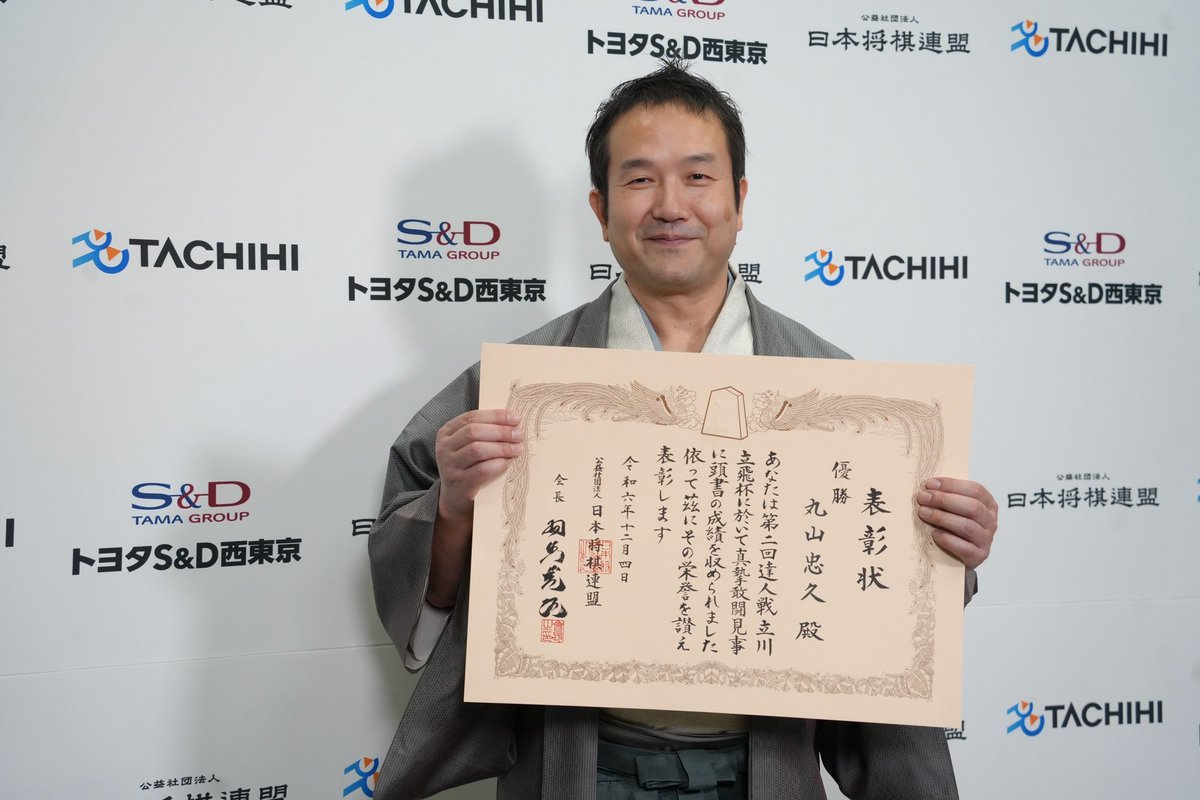 TACHIHI
S&D
TAMA GROUP
トヨタS&D西東京
公益社団法人
日本将棋連盟
TACHIHI
TACHIHI
S&D
TAMA GROUP
トヨタS&D西東京
日
盟
TACHIHI
S&D
TAMA GROUP
トヨタS&D西東京
S&D
TAMA GROUP
トヨタS&D西東京
公益社団法人
日本将棋連盟
TACHIHI
公益社団法人
将棋連盟
表彰状
優勝
丸山忠久殿
あなたは第二回達人戦立川
立飛杯に於いて真摯敢闘見事
に頭書の成績を収められました
依って茲にその栄誉を讃え
表彰します
令和六年十二月四日
公益社団法人日本将棋連盟
会長